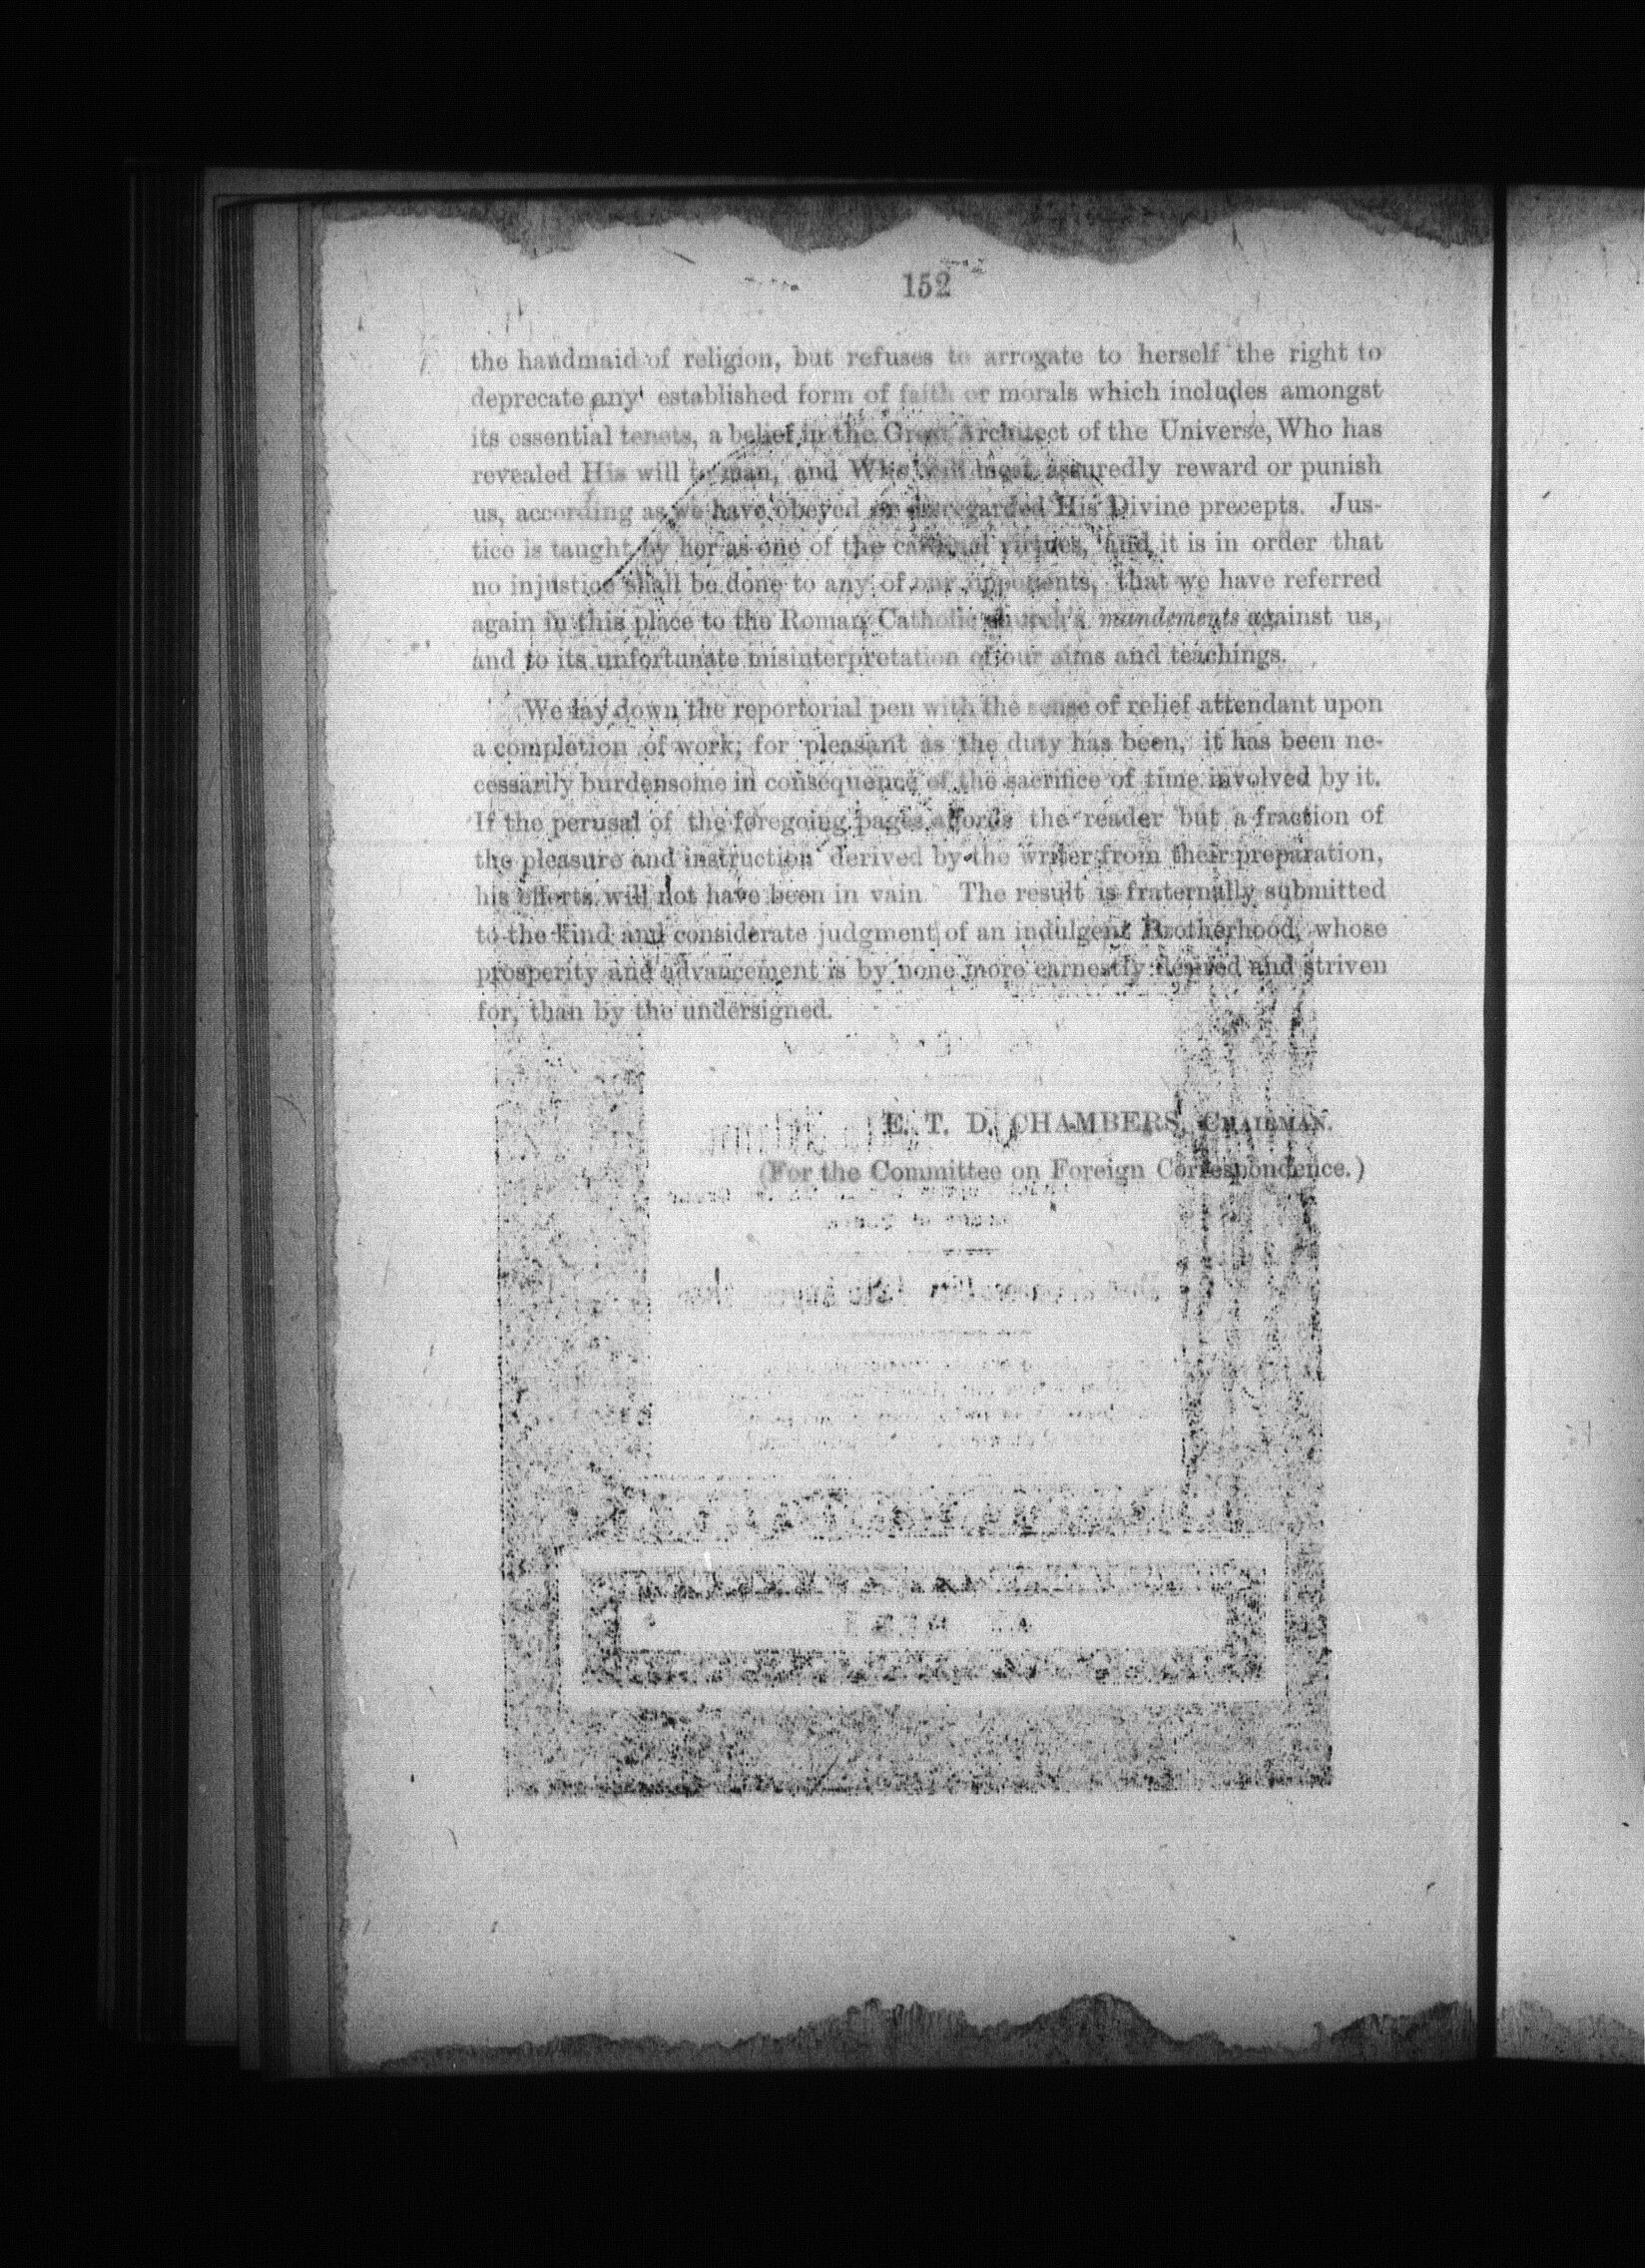 152
the handmaid of religion, but refuses to arrogate to herself the right to
deprecate any established form of faith or morals which includes amongst
its essential tenets, a belief in the Great Architect of the Universe, Who has
revealed His will to man, and Who will most assuredly reward or punish
us, according as we have obeyed or disregarded His Divine precepts. Jus-
tice is taught by her as one of the cardinal virtues, and it is in order that
no injustice shall be done to any of our opponents, that we have referred
again in this place to the Roman Catholic church's mandements against us,
and to its unfortunate misinterpretation of our aims and teachings.
We lay down the reportorial pen with the sense of relief attendant upon
a completion of work; for pleasant as the duty has been, it has been ne-
cessarily burdensome in consequence of the sacrifice of time involved by it.
If the perusal of the foregoing pages affords the reader but a fraction of
the pleasure and instruction derived by the writer from their preparation,
his efforts will not have been in vain. The result is fraternally submitted
to the kind and considerate judgment of an indulgent Brotherhood, whose
prosperity and advancement is by none more earnestly desired and striven
for, than by the undersigned.
E. T. D. CHAMBERS, CHAIRMAN.
(For the Committee on Foreign Correspondence.)